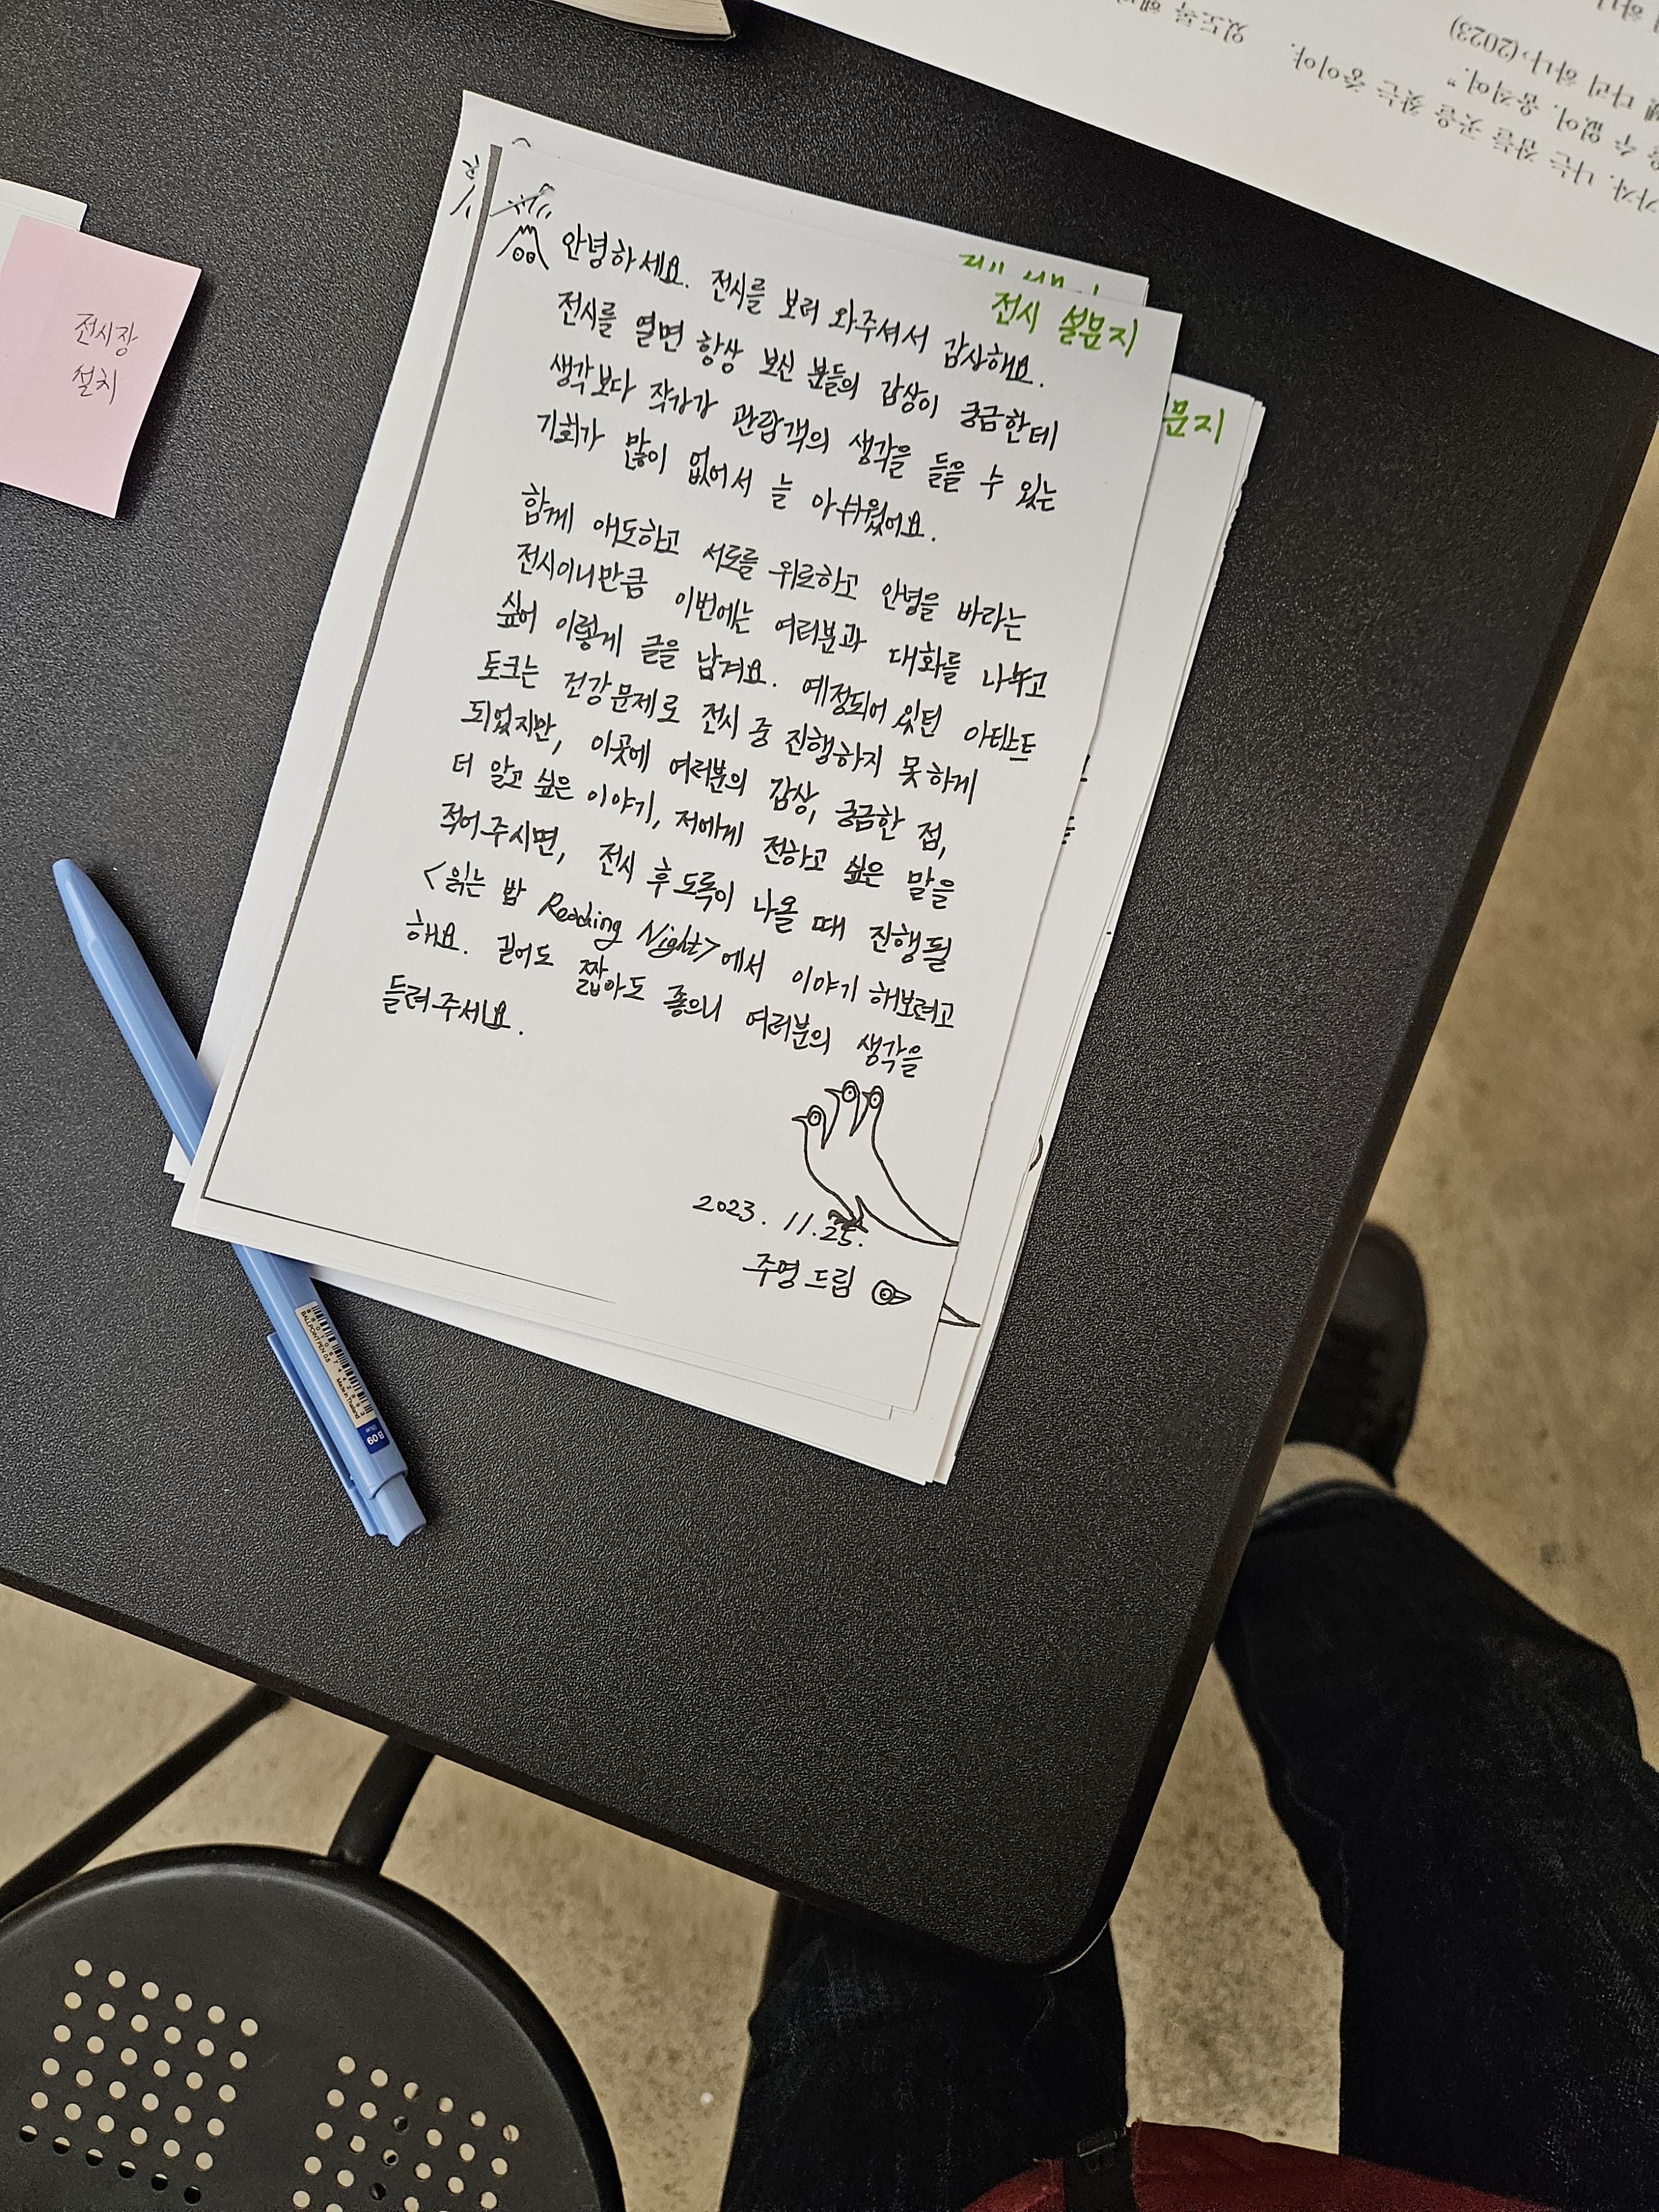 전시 설문지
안녕하세요. 전시를 보러 와주셔서 감사해요.
전시를 열면 항상 보신 분들의 감상이 궁금한데
생각보다 작가가 관람객의 생각을 들을 수 있는
기회가 많이 없어서 늘 아쉬웠어요.
함께 애도하고 서로를 위로하고 안녕을 바라는
전시이니만큼 이번에는 여러분과 대화를 나누고
싶어 이렇게 글을 남겨요. 예정되어 있던 아티스트
토크는 건강문제로 전시 중 진행하지 못하게
되었지만, 이곳에 여러분의 감상, 궁금한 점,
더 알고 싶은 이야기, 저에게 전하고 싶은 말을
적어주시면, 전시 후 도록이 나올 때 진행될
<읽는 밤 Reading Night>에서 이야기 해보려고
해요. 길어도 짧아도 좋으니 여러분의 생각을
들려주세요.
2023. 11.25.
주명 드림
문지
전시장
설치
BALLPOINT PEN 0.5
Made in Thailand
60 B
있도록
나는 잠들 곳을 찾는 중이야.
수 없어. 움직여."
다리 하나>(2023)